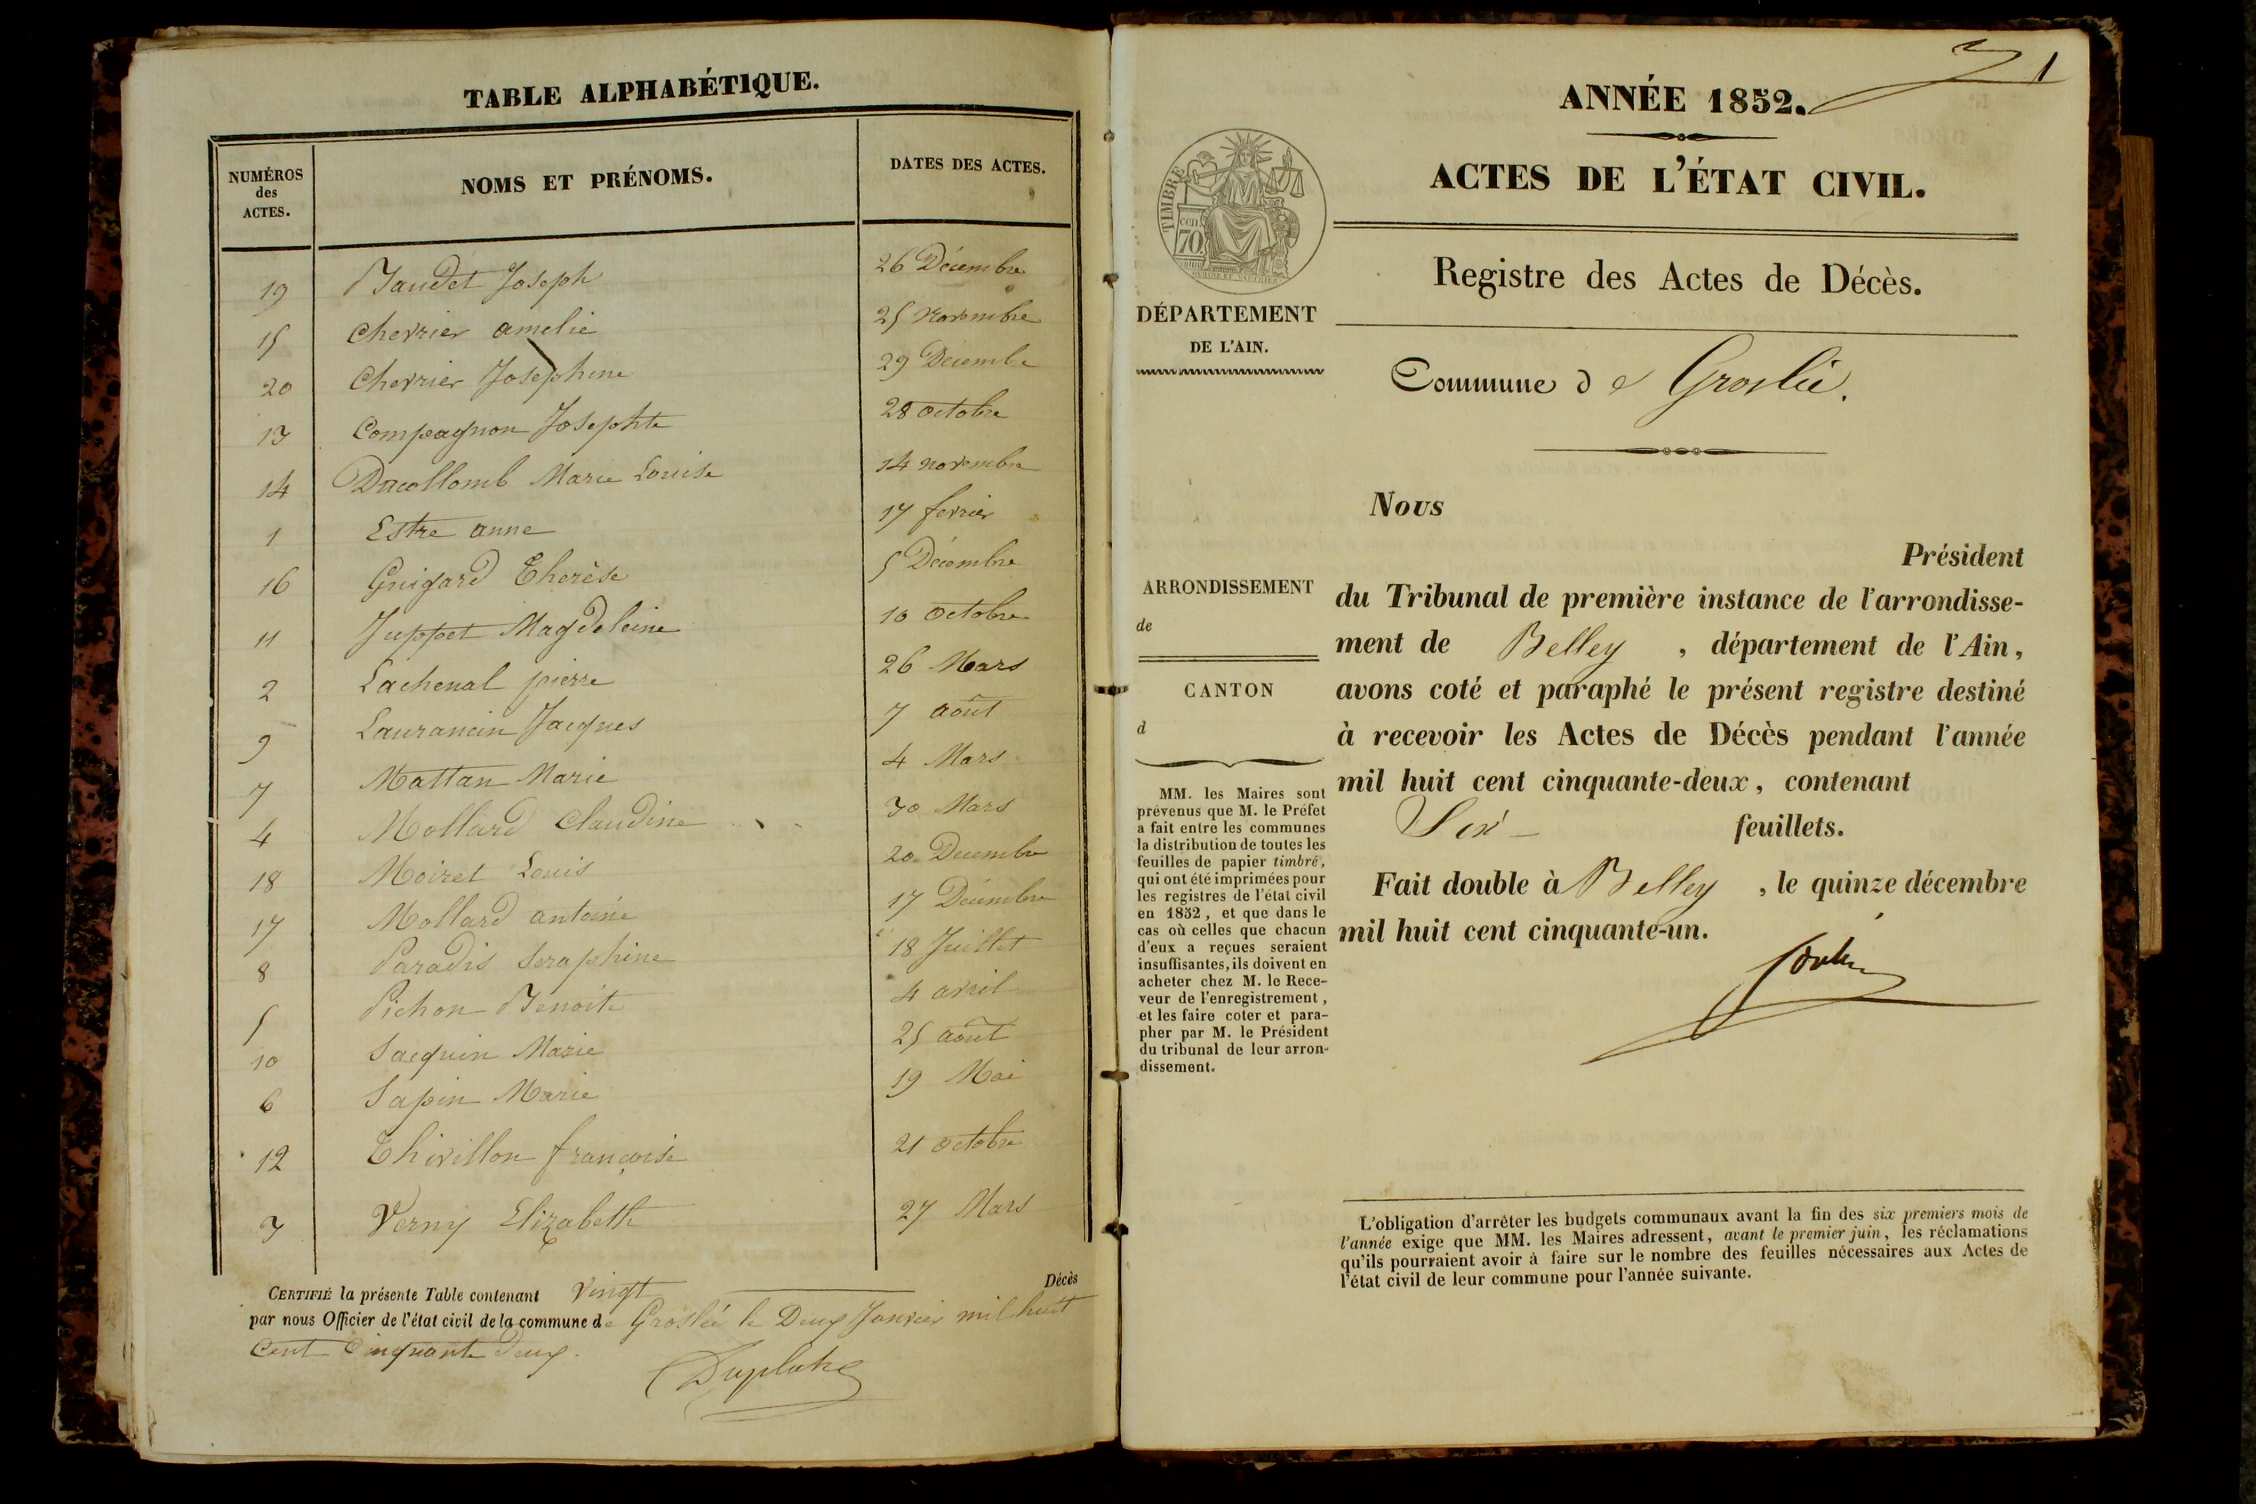 TABLE ALPHABÉTIQUE.
NUMÉROS des ACTES. NOMS ET PRÉNOMS. DATES DES ACTES.
19 Baudet Joseph 26 Décembre
15 Chevrier amelie 25 Novembre
20 Chevrier Josephine 29 Décembre
13 Compagnon Josephte 28 octobre
14 Ducollomb Marie Louise 14 novembre
1 Estre anne 17 fevrier
16 Guigard Therèse 5 Décembre
11 Juppet Magdeleine 10 octobre
2 Lachenal pierre 26 Mars
9 Laurancin Jacques 7 août
7 Mattan Marie 4 Mars
4 Mollard Claudine 30 Mars
18 Moiret Louis 20 Decembre
17 Mollard antoine 17 Décembre
8 Paradis Seraphine 18 Juillet
5 Pichon Benoite 4 avril
10 Sacquin Marie 25 août
6 Sapin Marie 19 Mai
12 Thivillon françoise 21 octobre
3 Verny Elizabeth 27 Mars
CERTIFIÉ la présente Table contenant vingt Décès
par nous Officier de l'état civil de la commune de Groslée le Deux Janvier mil huit
Cent Cinquante Deux.
1
ANNÉE 1852.
ACTES DE L'ÉTAT CIVIL.
TIMBRE
70
Registre des Actes de Décès.
DÉPARTEMENT
DE L'AIN.
Commune de Groslée.
ARRONDISSEMENT
de
CANTON
d
MM. les Maires sont
prévenus que M. le Préfet
a fait entre les communes
la distribution de toutes les
feuilles de papier timbré,
qui ont été imprimées pour
les registres de l'état civil
en 1852, et que dans le
cas où celles que chacun
d'eux a reçues seraient
insuffisantes, ils doivent en
acheter chez M. le Rece-
veur de l'enregistrement,
et les faire coter et para-
pher par M. le Président
du tribunal de leur arron-
dissement.
Nous
Président
du Tribunal de première instance de l'arrondisse-
ment de Belley, département de l'Ain,
avons coté et paraphé le présent registre destiné
à recevoir les Actes de Décès pendant l'année
mil huit cent cinquante-deux, contenant
Six feuillets.
Fait double à Belley, le quinze décembre
mil huit cent cinquante-un.
L'obligation d'arrêter les budgets communaux avant la fin des six premiers mois de
l'année exige que MM. les Maires adressent, avant le premier juin, les réclamations
qu'ils pourraient avoir à faire sur le nombre des feuilles nécessaires aux Actes de
l'état civil de leur commune pour l'année suivante.